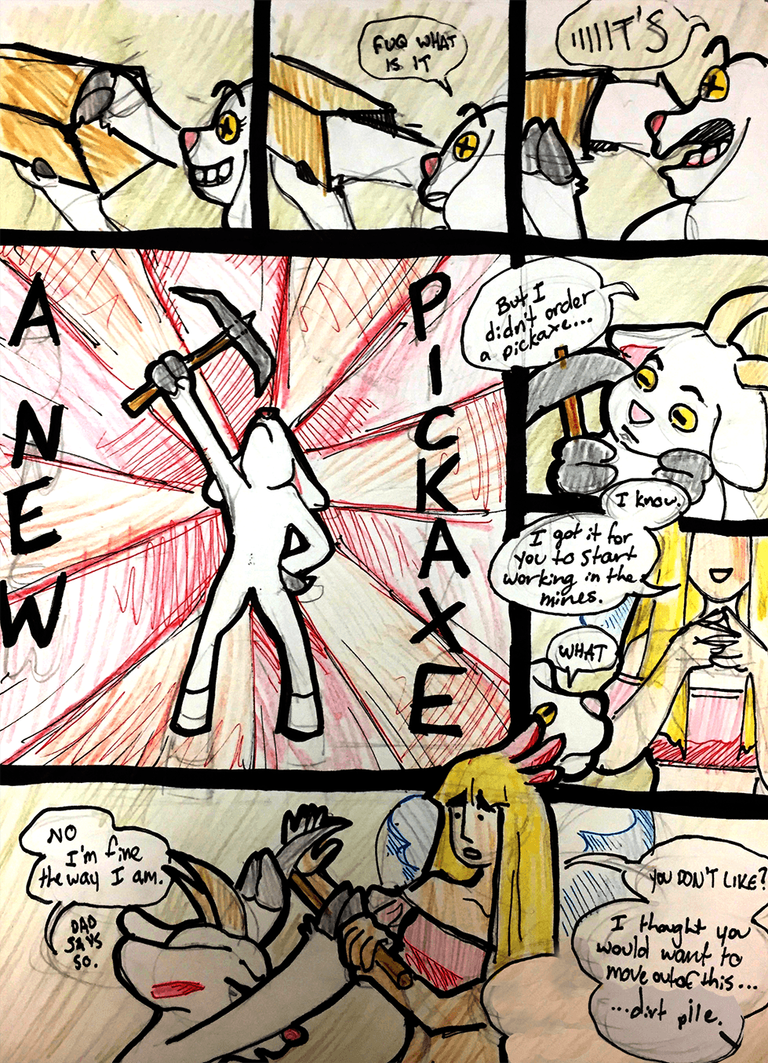 FUQ WHAT
IS IT
IIIIIT'S
A NEW
PICKAXE
But I
didn't order
a pickaxe...
I know.
I got it for
you to start
working in the
mines.
WHAT
NO
I'm fine
the way I am.
DAD
SAYS
SO.
YOU DON'T LIKE?
I thought you
would want to
move out of this...
...dirt pile.